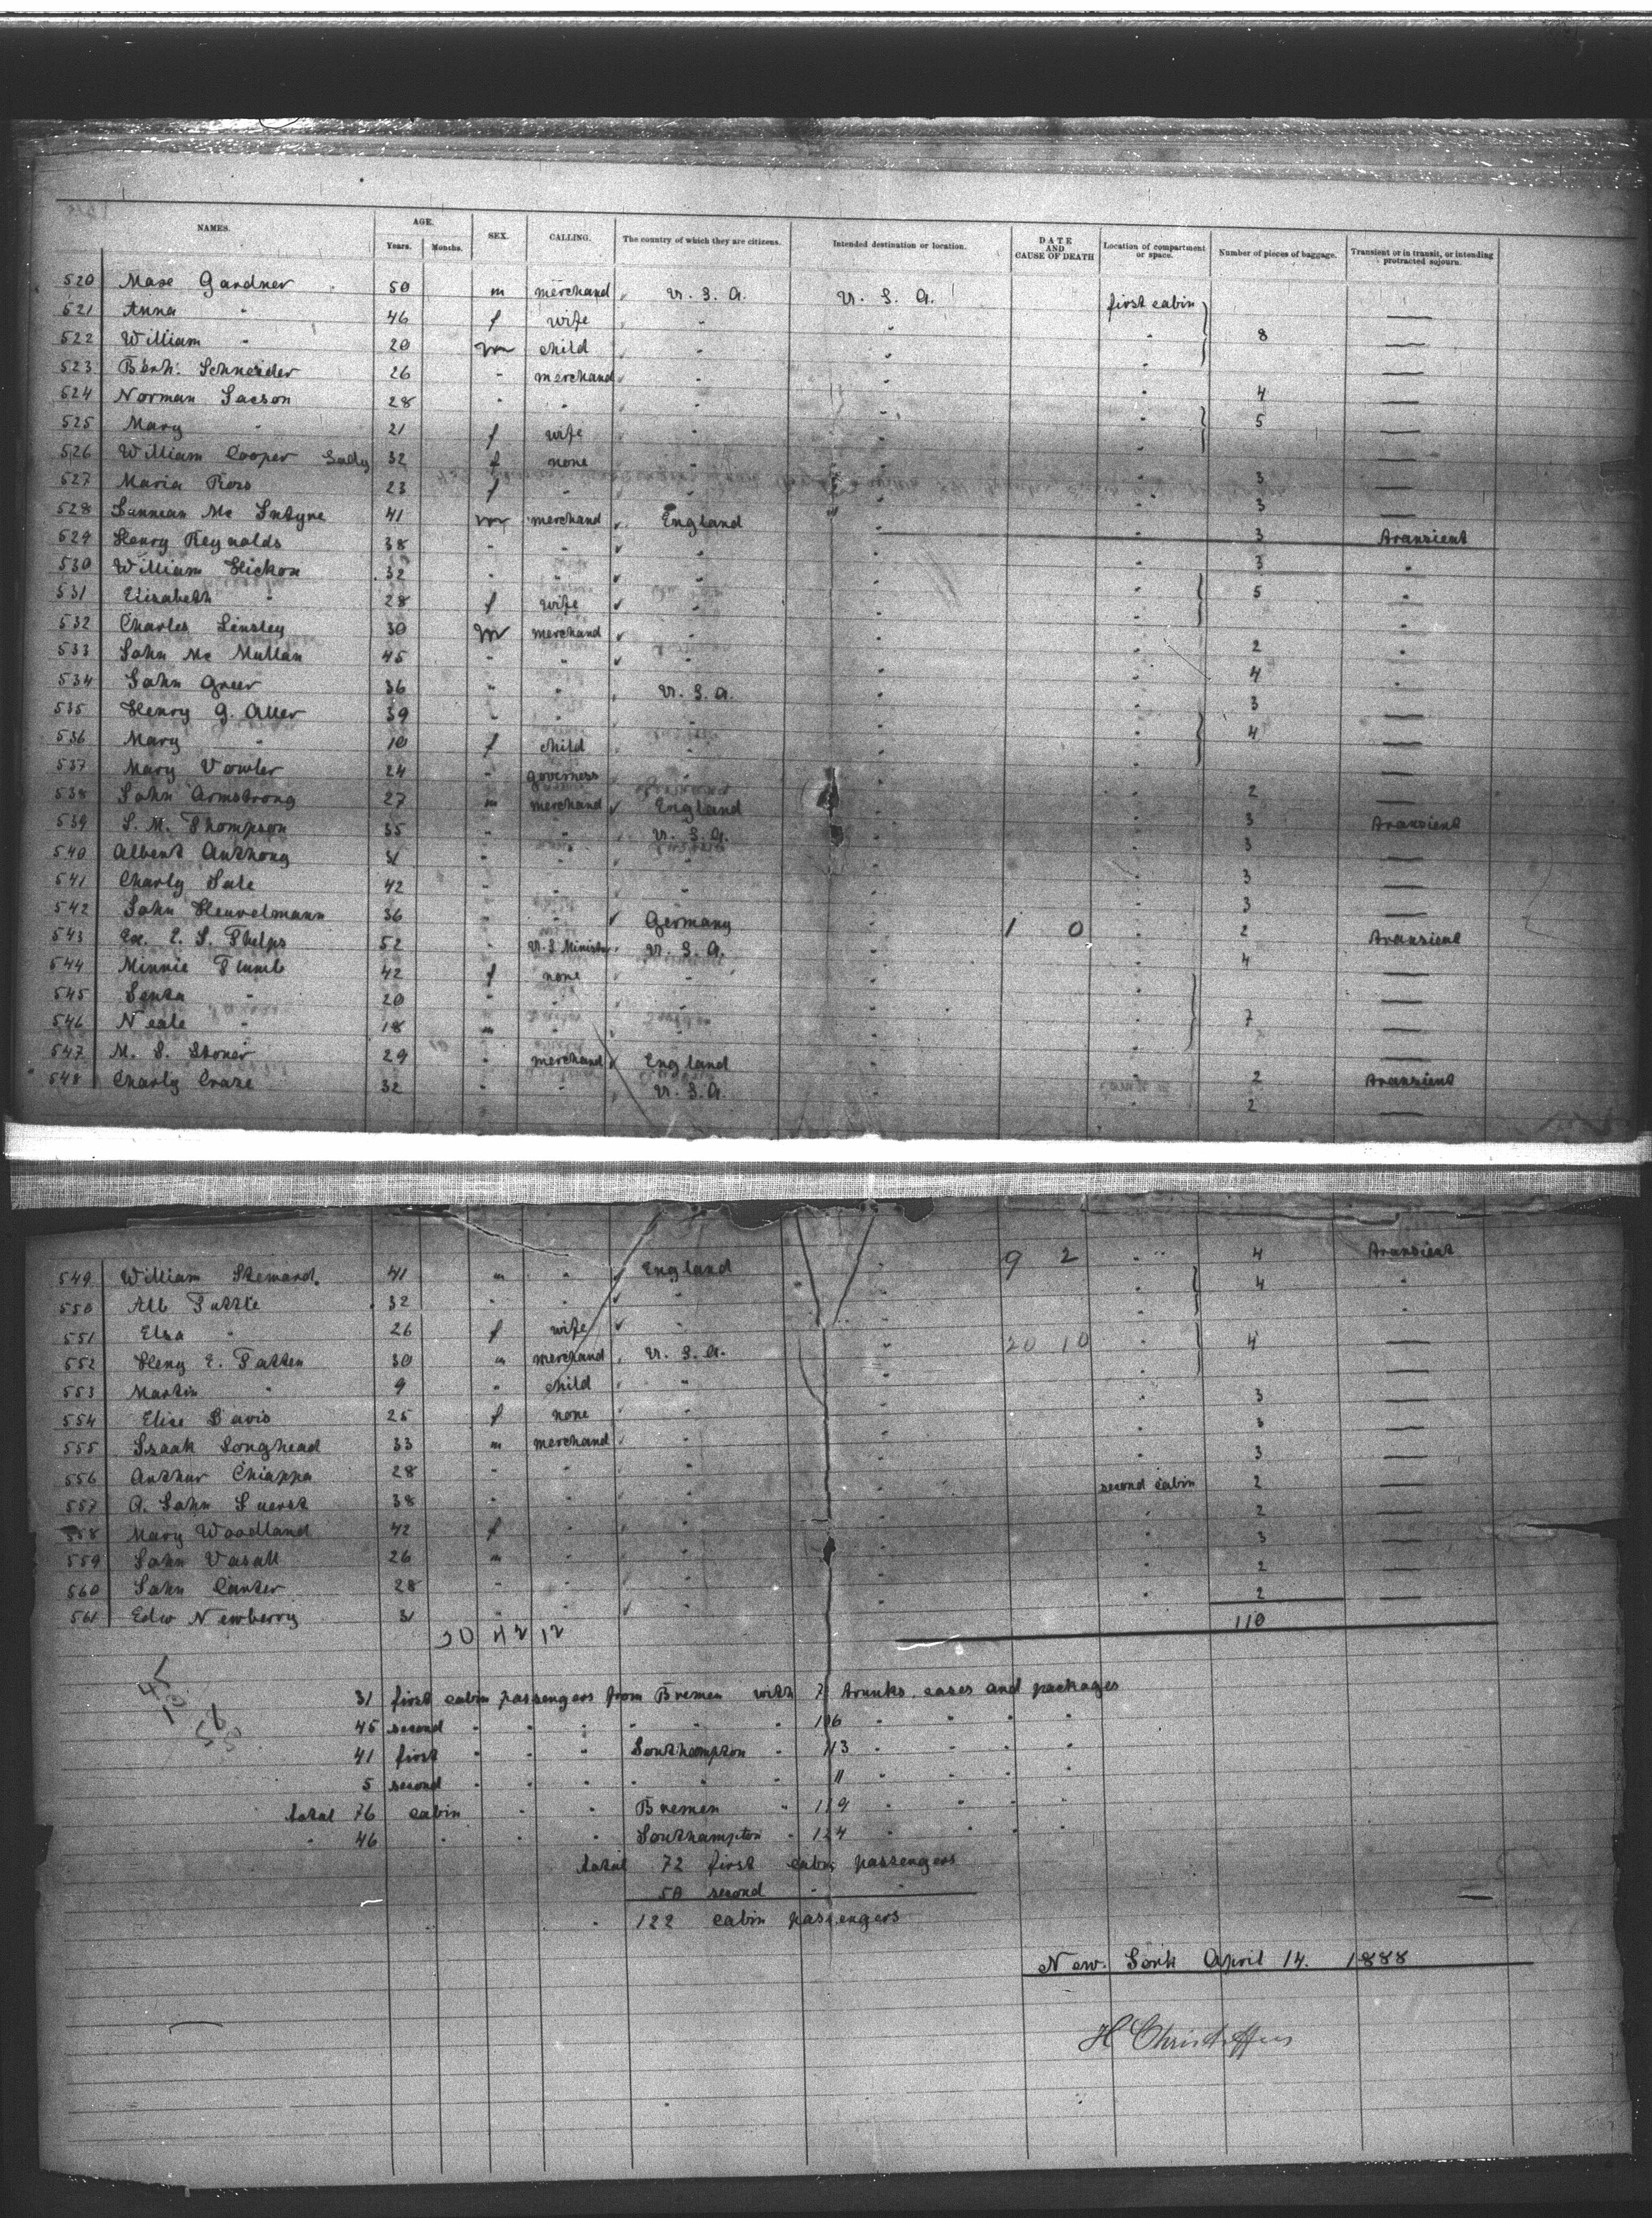 NAMES. AGE. Years. Months. SEX. CALLING. The country of which they are citizens. Intended destination or location. DATE AND CAUSE OF DEATH Location of compartment or space. Number of pieces of baggage. Transient or in transit, or intending protracted sojourn.
520 Mase Gardner 50 m merchand U. S. A. U. S. A. first cabin —
521 Anna " 46 f wife " " " 8 —
522 William " 20 m child " " " —
523 Bern. Schneider 26 " merchand " " " 4 —
524 Norman Jacson 28 " " " " " 5 —
525 Mary " 21 f wife " " " —
526 William Cooper Lady 32 f none " " " 3 —
527 Maria Ross 23 f " " " " 3 —
528 Mc Intyne 41 m merchand England " " 3 transient
529 Henry Reynolds 38 " " " " " 3 "
530 William Hickox 32 " " " " " 5 "
531 Elisabeth " 28 f wife " " " "
532 Charles Linsley 30 m merchand " " " 2 "
533 John Mc Mullan 45 " " " " " 4 "
534 John Greer 36 " " U. S. A. " " 3 —
535 Henry G. Aller 39 " " " " " 4 —
536 Mary " 10 f child " " " —
537 Mary Vowler 24 " governess " " " 2 —
538 John Armstrong 27 m merchand England " " 3 transient
539 J. M. Thompson 35 " " U. S. A. " " 3 —
540 Albert Anthony 31 " " " " " 3 —
541 Charly Sale 42 " " " " " 3 —
542 John Heuvelmann 36 " " Germany " 1 0 " 2 transient
543 Ex. E. J. Phelps 52 " U. S Minister U. S. A. " " 4 —
544 Minnie Plumb 42 f none " " " —
545 " 20 " " " " " 7 —
546 Neale " 18 m " " " " —
547 M. S. Stoner 29 " merchand England " " 2 transient
548 Charly Craze 32 " " U. S. A. " " 2 —
549 William Steward. 41 m " England " 9 2 " 4 transient
550 Alb Tuttle 32 " " " " " 4 "
551 Elsa " 26 f wife " " " "
552 Heny E. Patten 30 m merchand U. S. A. " 20 10 " 4 —
553 Martin " 9 " child " " " —
554 Elise Davis 25 f none " " " 3 —
555 Isaak Longhead 33 m merchand " " " 3 —
556 Arthur Chiappa 28 " " " " " 3 —
557 A. John 38 " " " " second cabin 2 —
558 Mary Woodland 42 f " " " " 2 —
559 John Vasall 26 m " " " " 3 —
560 John Canter 28 " " " " " 2 —
561 Edw Newberry 31 " " " " " 2 —
110
31 first cabin passengers from Bremen with trunks, cases and packages
45 second " " " " " 106 " " " "
41 first " " " Southampton " 113 " " " "
5 second " " " " " 11 " " " "
total 76 cabin " " Bremen " 119 " " " "
" 46 " " " Southampton " 124 " " " "
total 72 first cabin passengers
50 second " "
" " 122 cabin passengers
New York April 14. 1888
H Christoffers